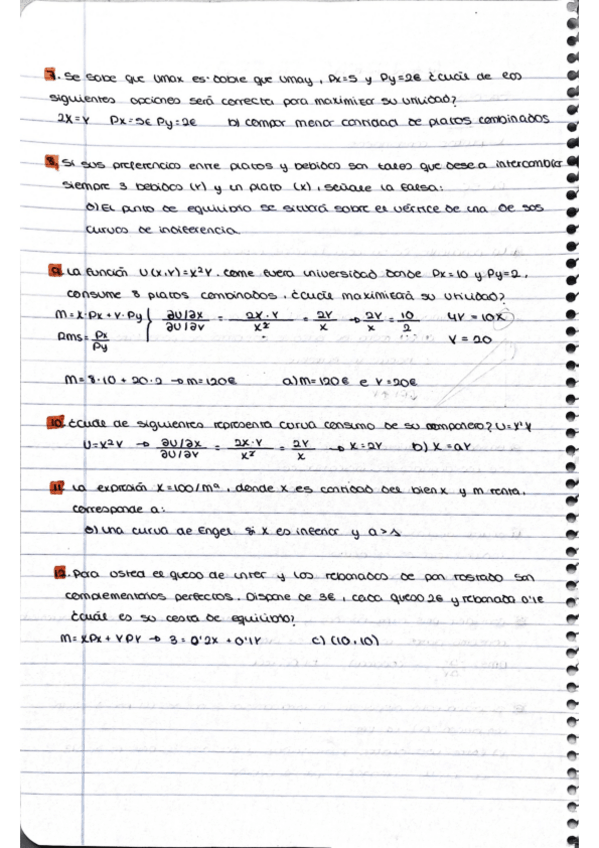 7. Se sabe que Umax es doble que Umay, Px=5 y Py=2€ ¿cuál de las
siguientes opciones será correcta para maximizar su utilidad?
2X=Y Px=5€ Py=2€ b) comprar menor cantidad de platos combinados
8. Si sus preferencias entre platos y bebidas son tales que desea intercambiar
siempre 3 bebidas (Y) y un plato (X), señale la falsa:
El punto de equilibrio se situará sobre el vértice de una de sus
curvas de indiferencia.
9. La función U(X,Y)=X²Y. come fuera universidad donde Px=10 y Py=2,
consume 8 platos combinados. ¿cuál maximizará su utilidad?
M=X·Px+Y·Py ∂U/∂X / ∂U/∂Y = 2X·Y / X² = 2Y / X → 2Y / X = 10 / 2 4Y=10X
RMS= Px / Py Y=20
M=8·10+20·2 → M=120€ a) M=120€ e Y=20€
10. ¿cuál de siguientes representa curva consumo de su compañero? U=X²Y
U=X²Y → ∂U/∂X / ∂U/∂Y = 2X·Y / X² = 2Y / X → X=2Y b) X=aY
11. La expresión X=100/Mª, donde X es cantidad del bien X y M renta,
corresponde a:
Una curva de Engel si X es inferior y a>1
12. Para usted el queso de untar y las rebanadas de pan tostado son
complementarios perfectos. Dispone de 3€, cada queso 2€ y rebanada 0'1€
¿cuál es su cesta de equilibrio?
M=XPx+YPY → 3=0'2X+0'1Y c) (10,10)